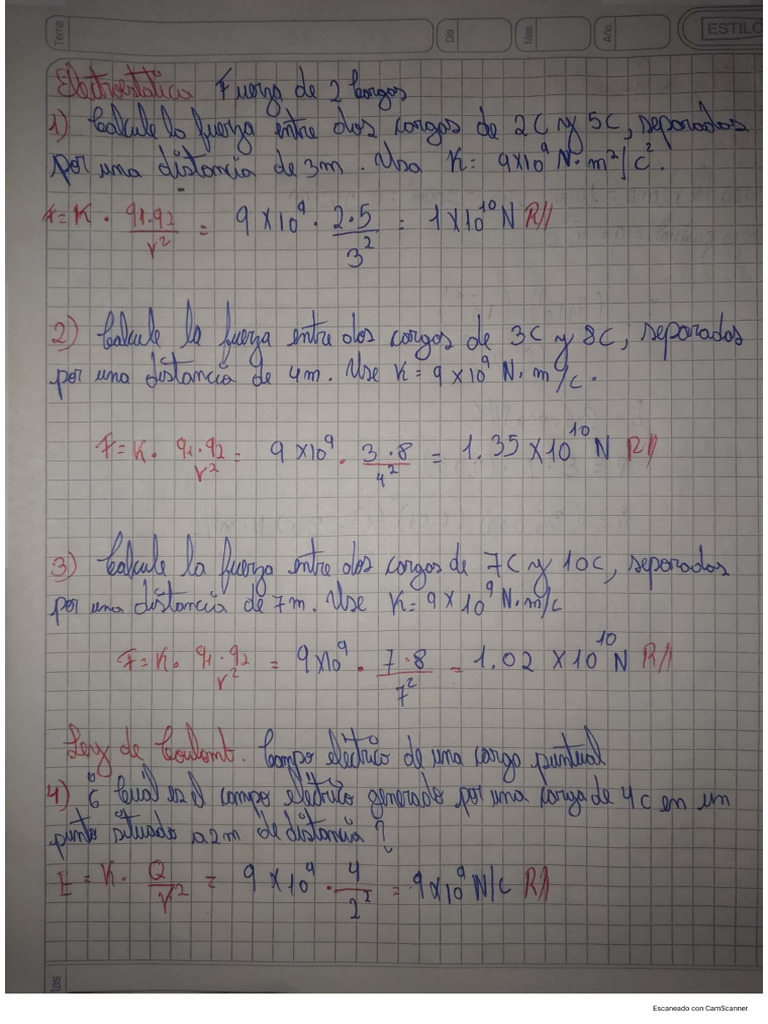 Tema Día Mes Año ESTILO
Electrostática Fuerza de 2 Cargas
1) Calcule la fuerza entre dos cargas de 2C y 5C, separadas
por una distancia de 3m. Usa K: 9x10⁹ N·m²/C².
F=K · q1·q2/r² = 9x10⁹ · 2·5/3² = 1x10¹⁰ N R//
2) Calcule la fuerza entre dos cargas de 3C y 8C, separadas
por una distancia de 4m. Use K = 9x10⁹ N·m/C.
F=K· q1·q2/r² = 9x10⁹ · 3·8/4² = 1.35x10¹⁰ N R//
3) Calcule la fuerza entre dos cargas de 7C y 10C, separadas
por una distancia de 7m. Use K=9x10⁹ N·m/C
F=K· q1·q2/r² = 9x10⁹ · 7·8/7² = 1.02 x10¹⁰ N R//
Ley de Coulomb. Campo eléctrico de una carga puntual
4) ¿Cuál es el campo eléctrico generado por una carga de 4C en un
punto situado a 2m de distancia?
E = K· Q/r² = 9x10⁹ · 4/2² = 9x10⁹ N/C R//
tas
Escaneado con CamScanner